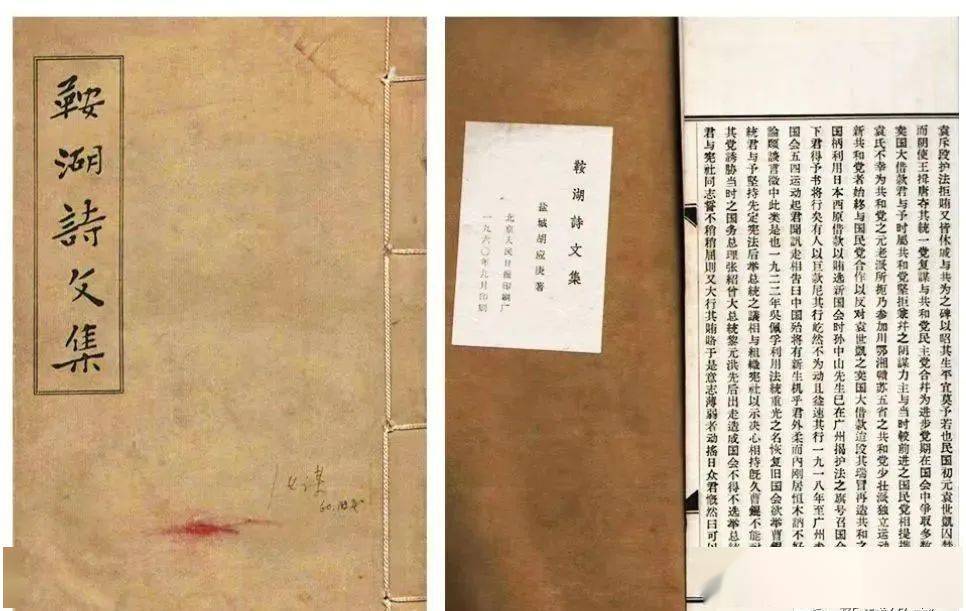 鞍湖詩文集
鞍湖詩文集
盐城胡应庚著
北京人民日报印刷厂
一九六〇年九月印刷
袁斥段护法拒贿又皆休戚与共为之碑以昭其生平宜莫予若也民国初元袁世凱囚
而阴使王揖唐夺其統一党复謀与共和党民主党合幷为进步党期在国会中爭取多数
卖国大借款君与予时属共和党坚拒兼幷之阴謀力主与当时較前进之国民党相提携
袁氏不幸为共和党之元老派所扼乃参加川鄂湘赣苏五省之共和党少壮派独立运动
新共和党者始終与国民党合作以反对袁世凱之卖国大借款迨段其瑞冒再造共和之
国柄利用日本西原借款以贿选新国会时孙中山先生已在广州揭护法之旗号召国会
下君得予书将行矣有人以巨款尼其行屹然不为动且益速其行一九一八年至广州
国会五四运动起君聞訊走相告曰中国殆将有新生机乎君外柔而內刚居恒木訥不好
論頤談言微中此类是也一九二二年吳佩孚利用法統重光之名恢复旧国会欲举曹錕
統君与予坚持先定宪法后举总統之議相与組織宪社以示决心相持既久曹錕不能
其党誘胁当时之国务总理张紹曾大总統黎元洪先后出走造成国会不得不选举总統
君与宪社同志誓不稍稍屈則又大行其贿賂于是意志薄弱者动搖日众君慨然曰可